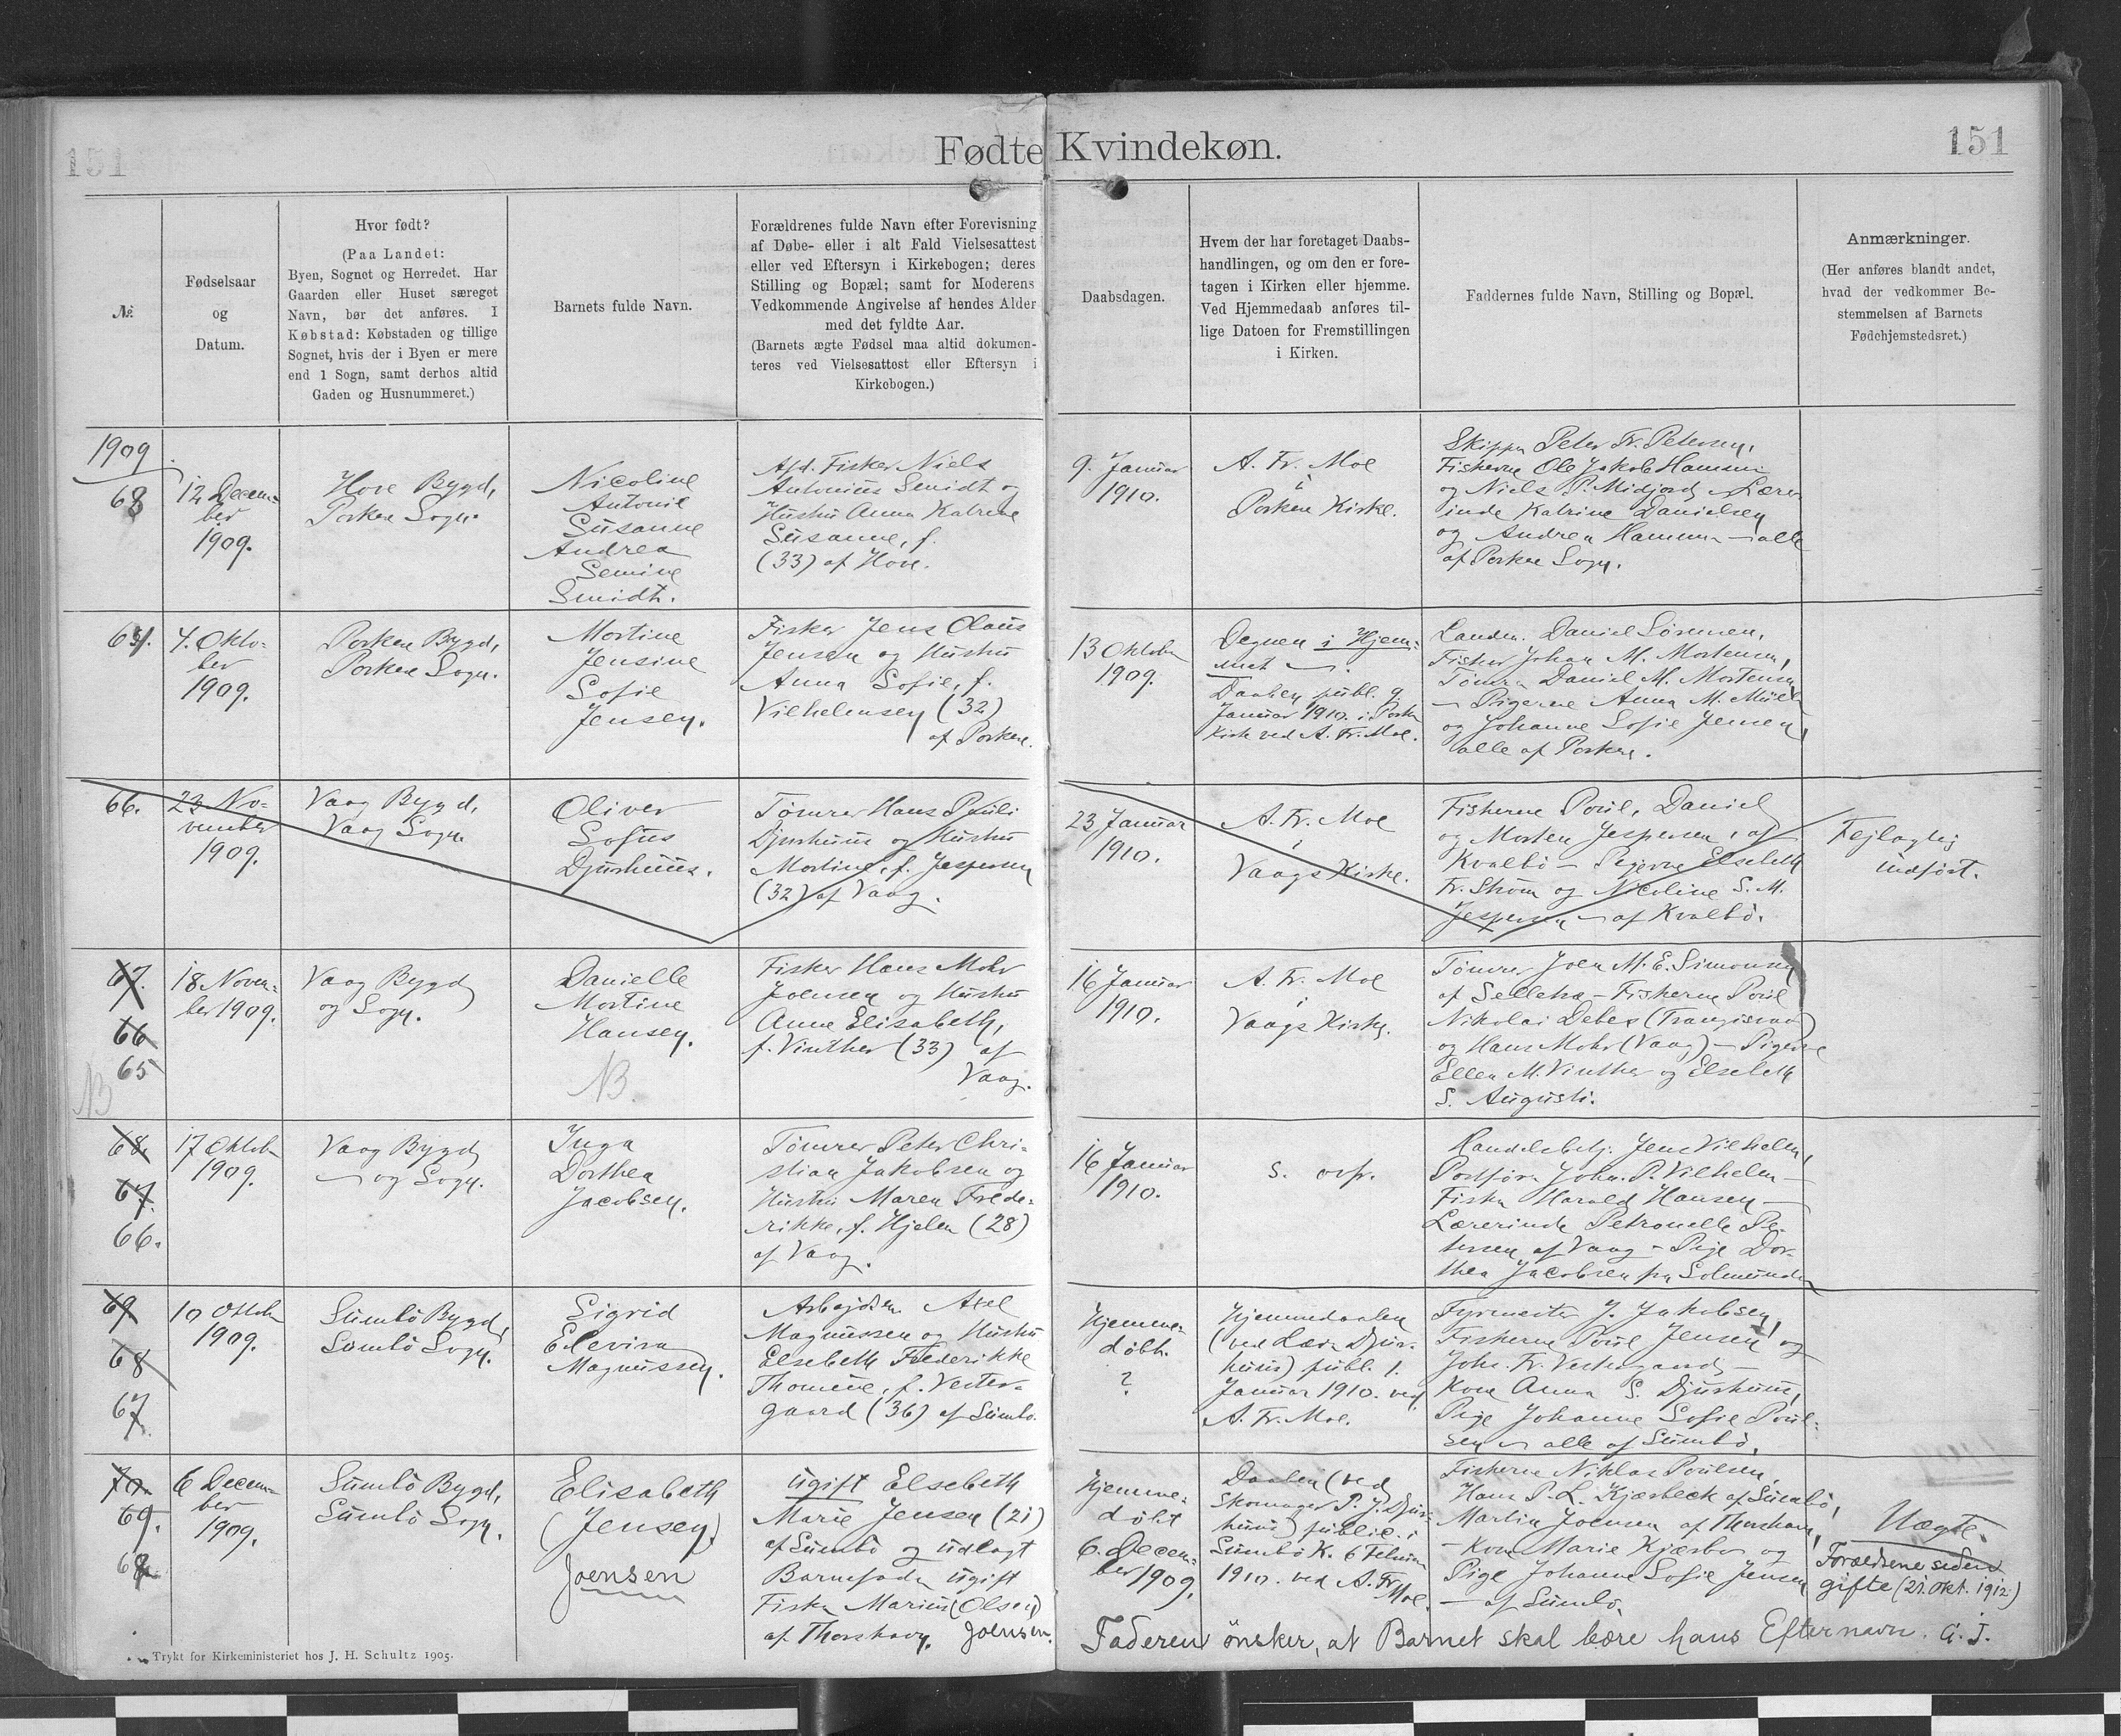 151
Fødte Kvindekøn.
151
№
Fødselsaar
og
Datum.
Hvor født?
(Paa Landet:
Byen, Sognet og Herredet. Har
Gaarden eller Huset særeget
Navn, bør det anføres. I
Købstad: Købstaden og tillige
Sognet, hvis der i Byen er mere
end 1 Sogn, samt derhos altid
Gaden og Husnummeret.)
Barnets fulde Navn.
Forældrenes fulde Navn efter Forevisning
af Døbe- eller i alt Fald Vielsesattest
eller ved Eftersyn i Kirkebogen; deres
Stilling og Bopæl; samt for Moderens
Vedkommende Angivelse af hendes Alder
med det fyldte Aar.
(Barnets ægte Fødsel maa altid dokumen-
teres ved Vielsesattest eller Eftersyn i
Kirkebogen.)
Daabsdagen.
Hvem der har foretaget Daabs-
handlingen, og om den er fore-
tagen i Kirken eller hjemme.
Ved Hjemmedaab anføres til-
lige Datoen for Fremstillingen
i Kirken.
Faddernes fulde Navn, Stilling og Bopæl.
Anmærkninger.
(Her anføres blandt andet,
hvad der vedkommer Be-
stemmelsen af Barnets
Fødehjemstedsret.)
1909
68
12 Decem-
ber
1909.
Hove Bygd,
Porkere Sogn.
Nicoline
Antonie
Susanne
Andrea
Semine
Smidt.
Afd. Fisker Niels
Antonius Smidt og
Hustru Anna Katrine
Susanne, f.
(33) af Hove.
9. Januar
1910.
A. Fr. Moe
i
Porkere Kirke.
Skipper Peter Fr. Petersen,
Fiskerne Ole Jakob Hammer
og Niels P. Midjord, Lærer-
inde Katrine Danielsen
og Andrea Hammer - alle
af Porkere Sogn.
4. Okto-
ber
1909.
Porkere Bygd,
Porkere Sogn.
Mortine
Jensine
Sofie
Jensen.
Fisker Jens Claus
Jensen og Hustru
Anna Sofie, f.
Vilhelmsen (32)
af Porkere.
13 Oktober
1909.
Degnen i Hjem-
met
Daaben publ. 9.
Januar 1910. i Porkere
Kirke ved A. Fr. Moe.
Landm. Daniel Sørensen,
Fisker Johan M. Mortensen,
Tømrer Daniel M. Mortensen
- Pigerne Anna M. Müller
og Johanne Sofie Jensen,
alle af Porkere.
66.
23 No-
vember
1909.
Vaag Bygd,
Vaag Sogn
Oliver
Sofus
Djurhuus.
Tømrer Hans Pauli
Djurhuus og Hustru
Mortine, f. Jespersen
(32) af Vaag.
23 Januar
1910.
A. Fr. Moe
i
Vaags Kirke.
Fiskerne Poul, Daniel
og Morten Jespersen, af
Kvalbø - Pigerne Elsebeth
Fr. Strøm og Nicoline S. M.
Jespersen - af Kvalbø.
Fejlagtig
indført.
67.
66
65
NB
18 Novem-
ber 1909.
Vaag Bygd
og Sogn.
Danielle
Mortine
Hansen.
NB.
Fisker Hans Mohr
Joensen og Hustru
Anne Elisabeth,
f. Vinther (33) af
Vaag.
16 Januar
1910.
A. Fr. Moe
i
Vaags Kirke.
Tømrer Joen M. E. Simonsen
af Selletræ - Fiskerne Poul
Nikolai Debes (Trangisvaag)
og Hans Mohr (Vaag) - Pigerne
Ellen M. Vinther og Elsebeth
S. Augusti.
68.
67.
66.
17 Oktober
1909.
Vaag Bygd
- og Sogn.
Inga
Dorthea
Jacobsen.
Tømrer Peter Chri-
stian Jakobsen og
Hustru Maren Frede-
rikke, f. Hjelm (28)
af Vaag.
16 Januar
1910.
s. ovf.
Handelsbetj. Jens Vilhelm,
Postfører John. P. Vilhelm -
Fisker Harald Hansen -
Lærerinde Petronelle Pe-
tersen af Vaag - Pige Dor-
thea Jacobsen fra Solmunde
69
68
67.
10 Oktober
1909.
Sumbø Bygd,
Sumbø Sogn.
Sigrid
Elevina
Magnussen.
Arbejdsm. Axel
Magnussen og Hustru
Elsebeth Frederikke
Thomine, f. Vester-
gaard (36) af Sumbø.
Hjemme-
døbt.
?
Hjemmedaaben
(ved Lærer Djur-
huus) publ. 1.
Januar 1910. ved
A. Fr. Moe.
Fyrmester J. Jakobsen,
Fiskerne Poul Jensen og
Johs. Fr. Vestergaard -
Kone Anna S. Djurhuus,
Pige Johanne Sofie Poul-
sen - alle af Sumbø.
70.
69.
68.
6 Decem-
ber
1909.
Sumbø Bygd,
Sumbø Sogn.
Elisabeth
(Jensen)
Joensen
ugift Elsebeth
Marie Jensen (21)
af Sumbø og udlagt
Barnefader ugift
Fisker Marius (Olsen)
af Thorshavn. Joensen.
Hjemme-
døbt
6. Decem-
ber 1909.
Daaben (ved
Skomager P. J. Djur-
huus) public. i
Sumbø K. 6 Februar
1910. ved A. Fr.
Moe.
Fiskerne Niklas Poulsen,
Hans P. L. Kjærbeck af Sumbø,
Martin Joensen af Thorshavn,
- Kone Marie Kjærbo og
Pige Johanne Sofie Jensen
- af Sumbø.
Uægte.
Forældrene siden
gifte (21. Okt. 1912)
Faderen ønsker, at Barnet skal bære hans Efternavn. G. J.
Trykt for Kirkeministeriet hos J. H. Schultz 1905.